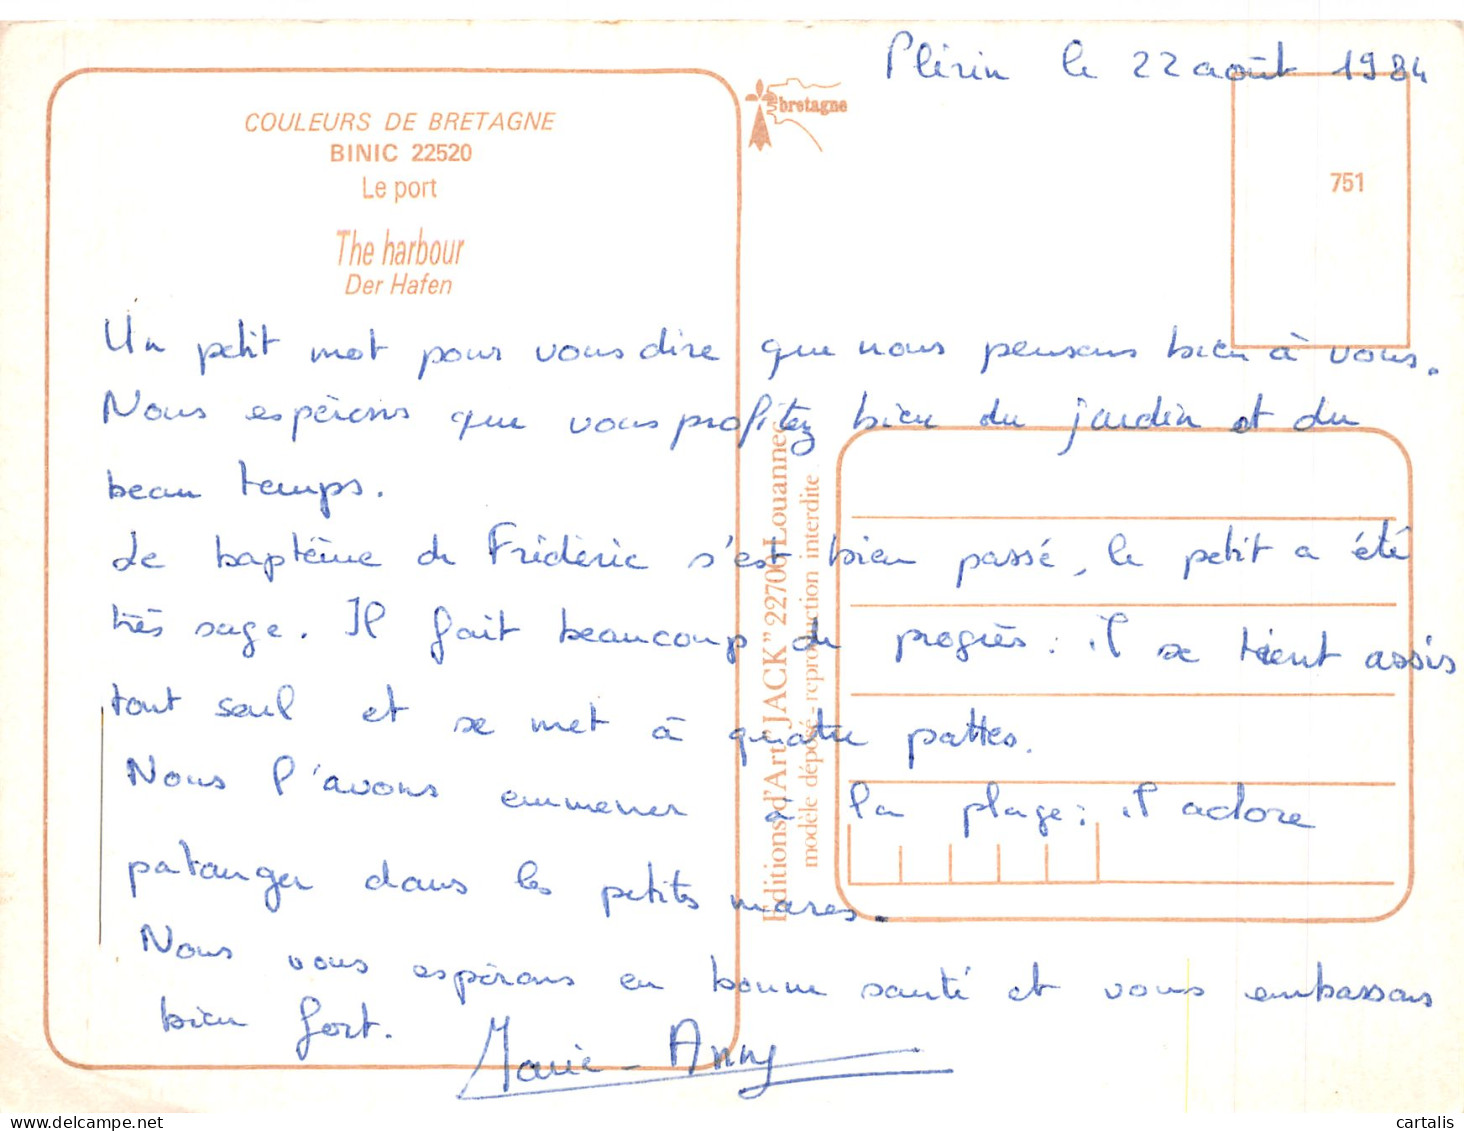 Plérin le 22 août 1984
COULEURS DE BRETAGNE
BINIC 22520
Le port
The harbour
Der Hafen
bretagne
751
Un petit mot pour vous dire que nous pensons bien à vous.
Nous espérons que vous profitez bien du jardin et du
beau temps.
Le baptême de Frédéric s'est bien passé, le petit a été
très sage. Il fait beaucoup de progrès : il se tient assis
tout seul et se met à quatre pattes.
Nous l'avons emmener à la plage : il adore
patauger dans les petits mares.
Nous vous espérons en bonne santé et vous embassons
bien fort.
Marie-Anny
Editions d'Art "JACK" 22700 Louannec
modèle déposé - reproduction interdite
cartalis